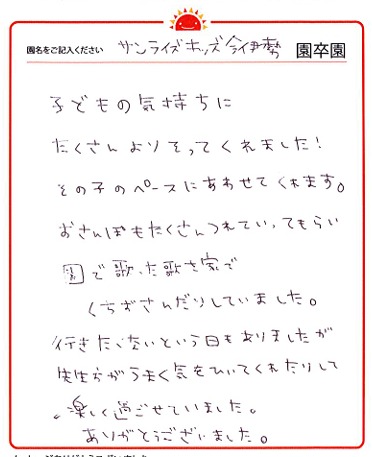 園名をご記入ください サンライズキッズ今伊勢 園卒園
子どもの気持ちに
たくさんよりそってくれました!
その子のペースにあわせてくれます。
おさんぽもたくさんつれていってもらい
園で歌った歌を家で
くちずさんだりしていました。
行きたくないという日もありましたが
先生方がうまく気をひいてくれたりして
楽しく過ごせていました。
ありがとうございました。